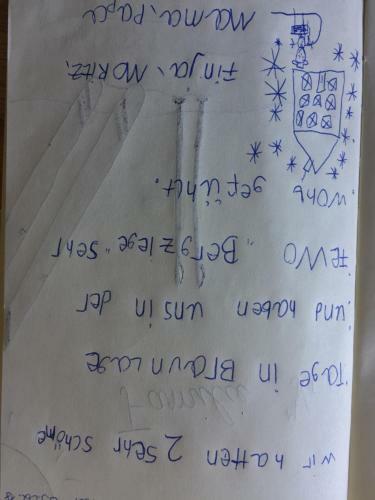 wir hatten 2 sehr schöne
Tage in Braunlage
und haben uns in der
FeWo "Bergziege" sehr
wohl gefühlt.
Finja, Moritz,
Mama, Papa